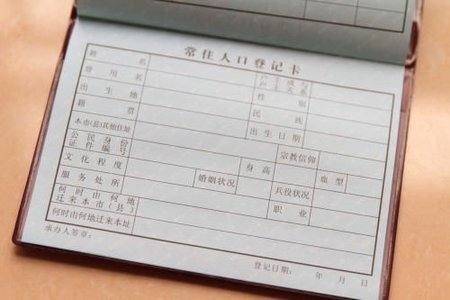 常住人口登记卡
姓名
曾用名 性别
出生地 民族
籍贯 出生日期
本市(县)其他住址 宗教信仰
公民身份证件编号 身高 血型
文化程度 婚姻状况 兵役状况
服务处所 职业
何时由何地迁来本市(县)
何时由何地迁来本址
承办人签章： 登记日期： 年 月 日